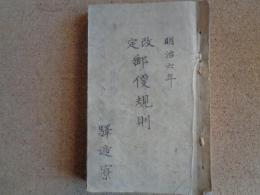 明治六年
改定
郵便規則
驛逓寮